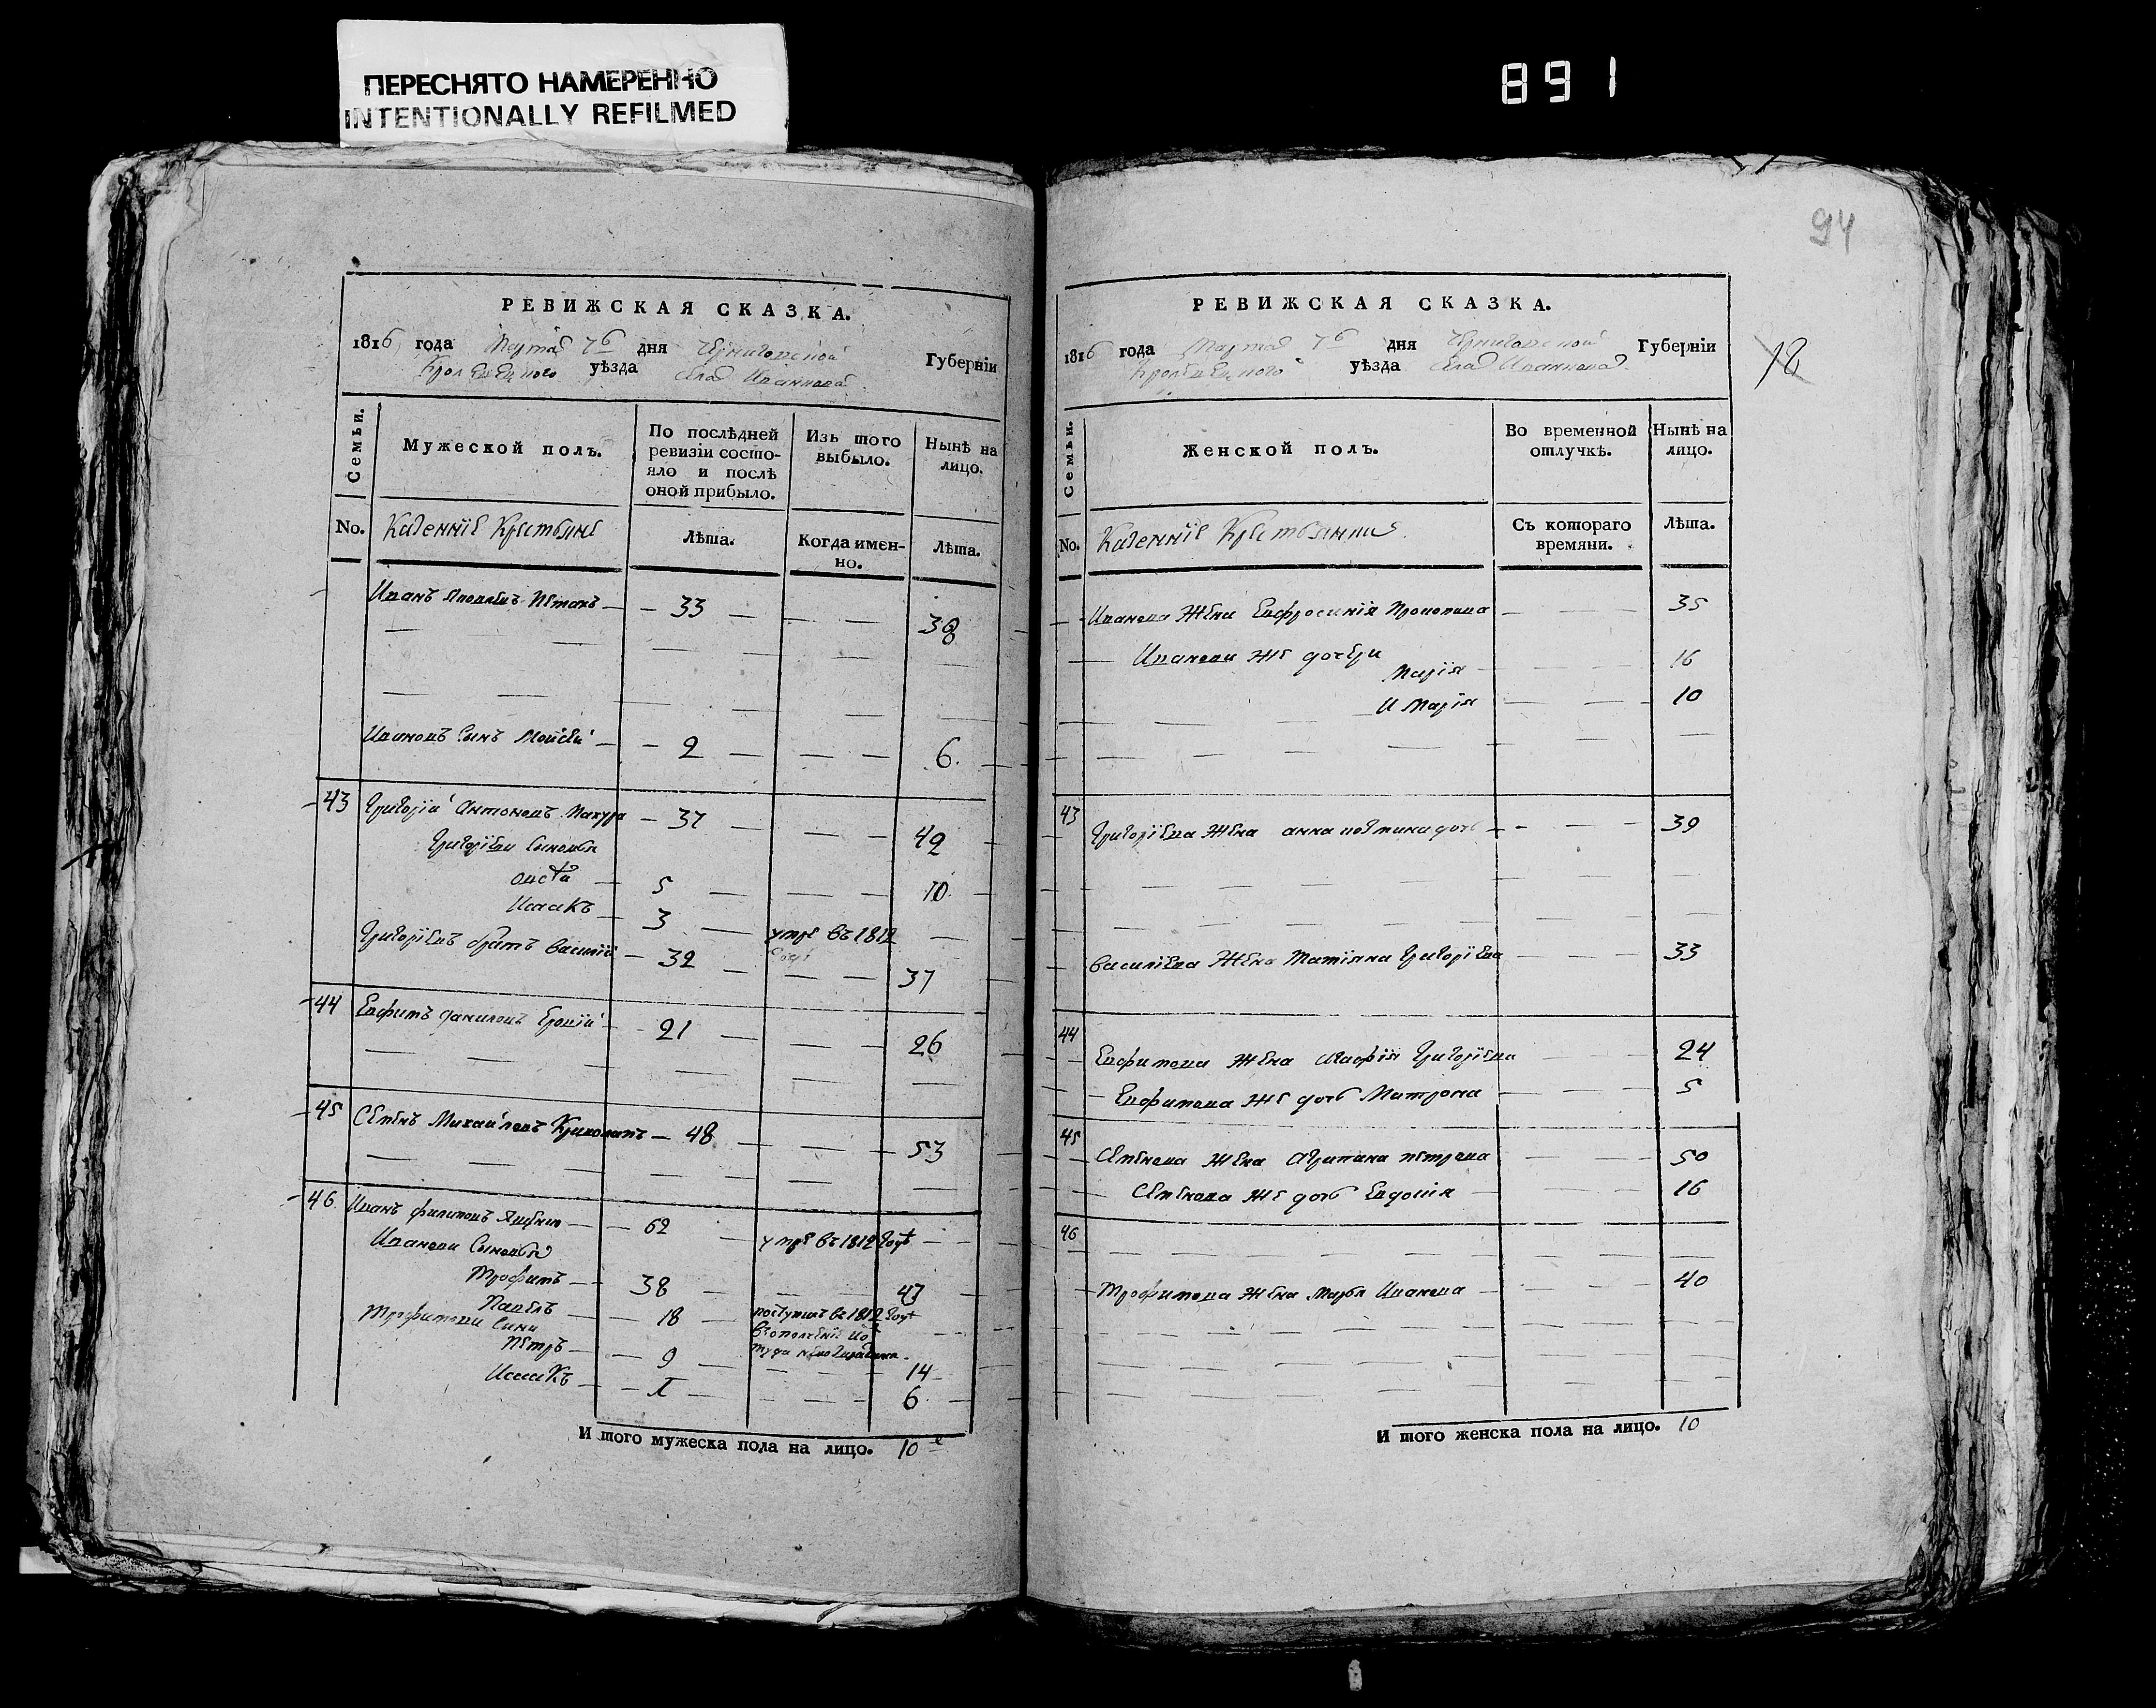 ПЕРЕСНЯТО НАМЕРЕННО
INTENTIONALLY REFILMED
891
94
18
РЕВИЖСКАЯ СКАЗКА.
1816 года Марта дня Черниговской Губерніи
Кролевецкого уѣзда села Иванкова
Семьи.
Мужеской полъ.
По послѣдней ревизіи состояло и послѣ оной прибыло.
Изъ того выбыло.
Нынѣ на лицо.
No.
Казенніе Крестьяне
Лѣта.
Когда именно.
Лѣта.
Иванъ 33 38
Ивановъ Сынъ Моисей 2 6.
43 Григорій Антоновъ Махура 37 42
Григоріеви Сыновья
5 10.
Исаакъ 3 умре въ 1812
Григоріевъ братъ Василій 32 37
44 Евфимъ Даниловъ 21 26
45 Семенъ Михайловъ 48 53
46 Иванъ Филиповъ 62 умре въ 1812 году
Иванови Сыновья
Трофимъ 38 43
Павелъ 18 поступилъ въ 1812 году
Трофимови Сини
въ ополченіе
Петръ 9 14
Исаакъ 1 6
И того мужеска пола на лицо. 10
РЕВИЖСКАЯ СКАЗКА.
1816 года Марта дня Черниговской Губерніи
Кролевецкого уѣзда села Иванкова.
Семьи.
Женской полъ.
Во временной отлучкѣ.
Нынѣ на лицо.
No.
Казенніе Крестьянки
Съ котораго времяни.
Лѣта.
Иванова Жена Евфросинія 35
Иванови Же дочери
Марія 16
и Марія 10
43 Григоріева Жена Анна дочь 39
Василіева Жена Татіяна Григоріева 33
44
Евфимова Жена Агафія Григоріева 24
Евфимова Же дочь Матрона 5
45
Семенова Жена Агрипина Петрова 50
Семенова Же дочь Евдокія 16
46
Трофимова Жена Марья Иванова 40
И того женска пола на лицо. 10